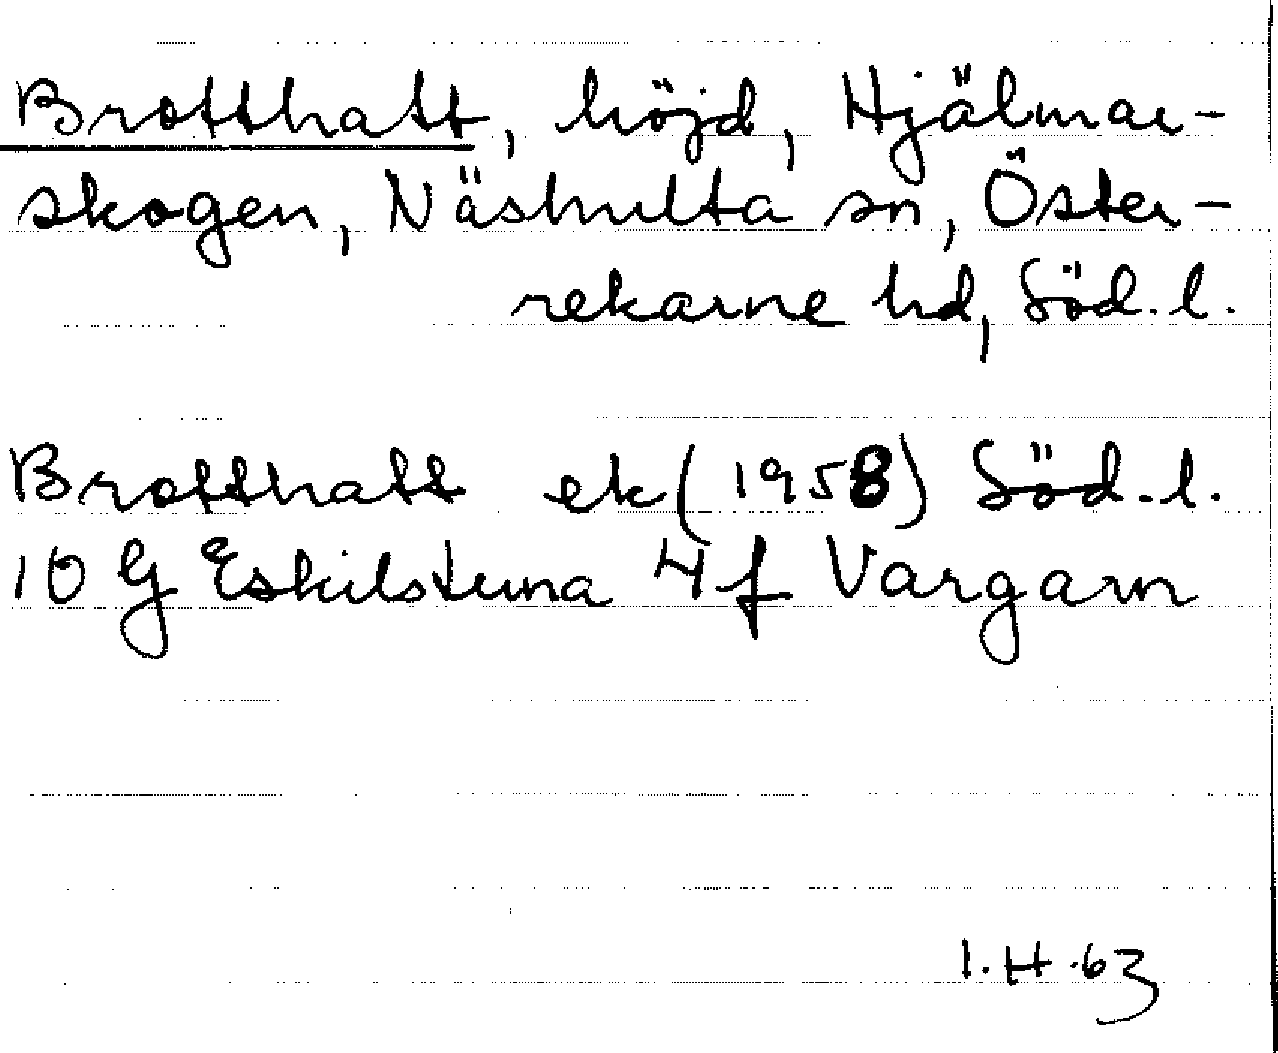 Brotthatt, höjd, Hjälmar-
skogen, Näshulta sn, Öster-
rekarne hd, Söd.l.
Brotthatt ek (1958) Söd.l.
10 G Eskilstuna 4 f Vargarn
I.H.63